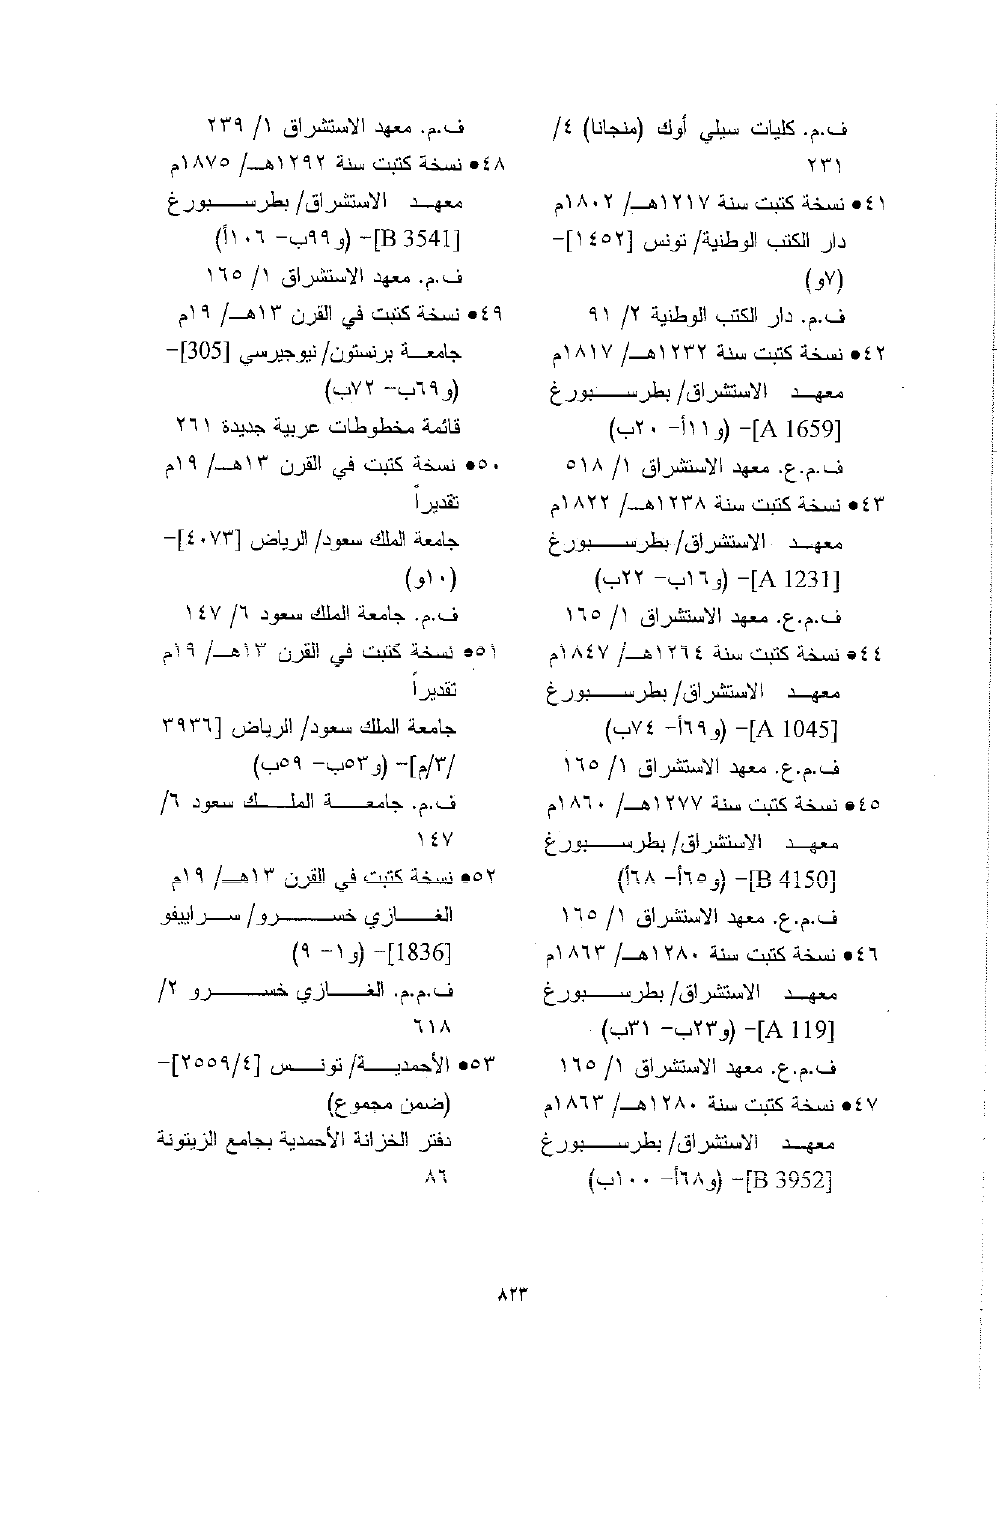 ف.م. كليات سيلي أوك (منجانا) ٤/
٢٣١
٤١• نسخة كتبت سنة ١٢١٧هـ/ ١٨٠٢م
دار الكتب الوطنية/ تونس [١٤٥٢]-
(٧و)
ف.م. دار الكتب الوطنية ٢/ ٩١
٤٢• نسخة كتبت سنة ١٢٣٢هـ/ ١٨١٧م
معهد الاستشراق/ بطرسبورغ
[A 1659]- (و١١أ- ٢٠ب)
ف.م.ع. معهد الاستشراق ١/ ٥١٨
٤٣• نسخة كتبت سنة ١٢٣٨هـ/ ١٨٢٢م
معهد الاستشراق/ بطرسبورغ
[A 1231]- (و١٦ب- ٢٢ب)
ف.م.ع. معهد الاستشراق ١/ ١٦٥
٤٤• نسخة كتبت سنة ١٢٦٤هـ/ ١٨٤٧م
معهد الاستشراق/ بطرسبورغ
[A 1045]- (و٦٩أ- ٧٤ب)
ف.م.ع. معهد الاستشراق ١/ ١٦٥
٤٥• نسخة كتبت سنة ١٢٧٧هـ/ ١٨٦٠م
معهد الاستشراق/ بطرسبورغ
[B 4150]- (و٦٥أ- ٦٨أ)
ف.م.ع. معهد الاستشراق ١/ ١٦٥
٤٦• نسخة كتبت سنة ١٢٨٠هـ/ ١٨٦٣م
معهد الاستشراق/ بطرسبورغ
[A 119]- (و٢٣ب- ٣١ب)
ف.م.ع. معهد الاستشراق ١/ ١٦٥
٤٧• نسخة كتبت سنة ١٢٨٠هـ/ ١٨٦٣م
معهد الاستشراق/ بطرسبورغ
[B 3952]- (و٦٨أ- ١٠٠ب)
ف.م. معهد الاستشراق ١/ ٢٣٩
٤٨• نسخة كتبت سنة ١٢٩٢هـ/ ١٨٧٥م
معهد الاستشراق/ بطرسبورغ
[B 3541]- (و٩٩ب- ١٠٦أ)
ف.م. معهد الاستشراق ١/ ١٦٥
٤٩• نسخة كتبت في القرن ١٣هـ/ ١٩م
جامعة برنستون/ نيوجيرسي [305]-
(و٦٩ب- ٧٢ب)
قائمة مخطوطات عربية جديدة ٢٦١
٥٠• نسخة كتبت في القرن ١٣هـ/ ١٩م
تقديراً
جامعة الملك سعود/ الرياض [٤٠٧٣]-
(١٠و)
ف.م. جامعة الملك سعود ٦/ ١٤٧
٥١• نسخة كتبت في القرن ١٣هـ/ ١٩م
تقديراً
جامعة الملك سعود/ الرياض [٣٩٣٦
/٣/م]- (و٥٣ب- ٥٩ب)
ف.م. جامعة الملك سعود ٦/
١٤٧
٥٢• نسخة كتبت في القرن ١٣هـ/ ١٩م
الغازي خسرو/ سراييفو
[1836]- (و١- ٩)
ف.م.م. الغازي خسرو ٢/
٦١٨
٥٣• الأحمدية/ تونس [٢٥٥٩/٤]-
(ضمن مجموع)
دفتر الخزانة الأحمدية بجامع الزيتونة
٨٦
٨٢٣